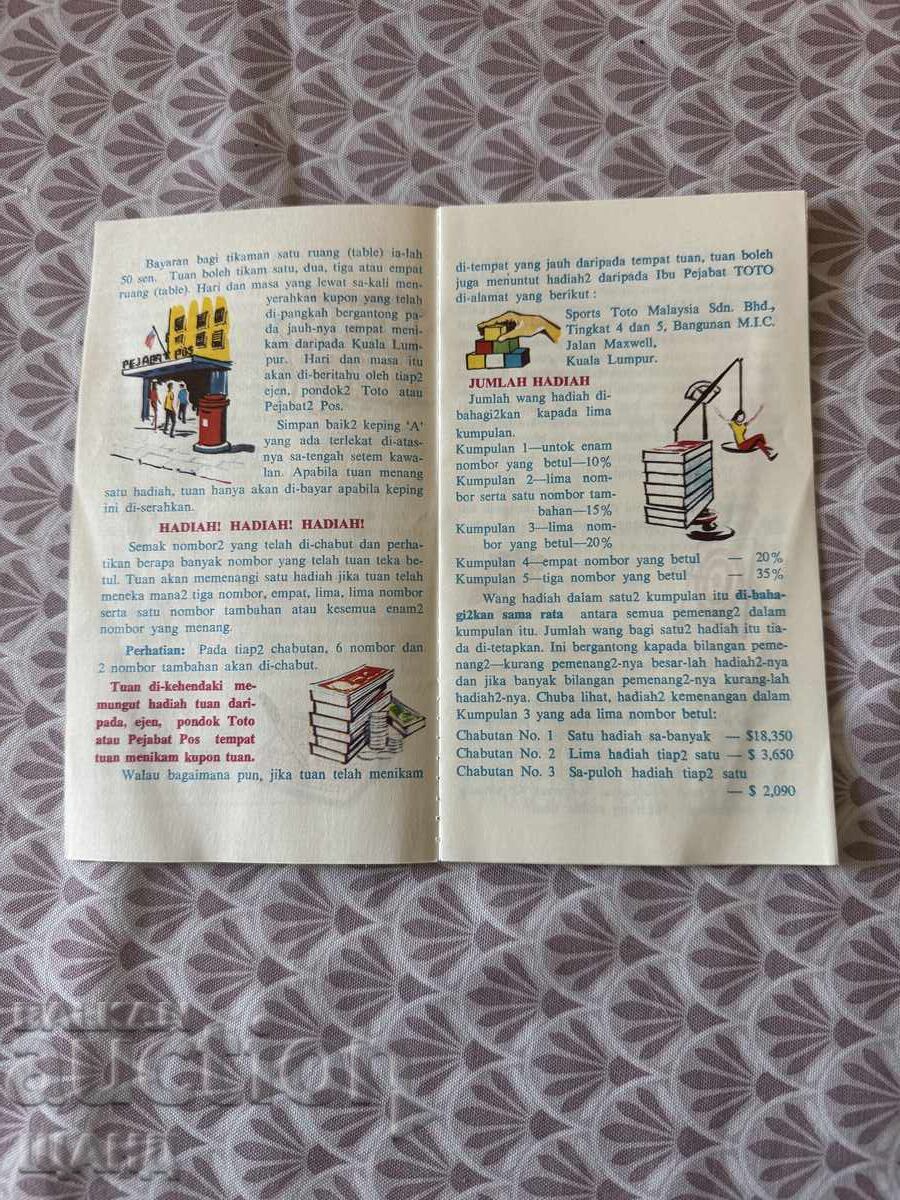 Bayaran bagi tikaman satu ruang (table) ia-lah
50 sen. Tuan boleh tikam satu, dua, tiga atau empat
ruang (table). Hari dan masa yang lewat sa-kali men-
yerahkan kupon yang telah
di-pangkah bergantong pa-
da jauh-nya tempat meni-
kam daripada Kuala Lum-
pur. Hari dan masa itu
akan di-beritahu oleh tiap2
ejen, pondok2 Toto atau
Pejabat2 Pos.
PEJABAT POS
Simpan baik2 keping 'A'
yang ada terlekat di-atas-
nya sa-tengah setem kawa-
lan. Apabila tuan menang
satu hadiah, tuan hanya akan di-bayar apabila keping
ini di-serahkan.
HADIAH! HADIAH! HADIAH!
Semak nombor2 yang telah di-chabut dan perha-
tikan berapa banyak nombor yang telah tuan teka be-
tul. Tuan akan memenangi satu hadiah jika tuan telah
meneka mana2 tiga nombor, empat, lima, lima nombor
serta satu nombor tambahan atau kesemua enam2
nombor yang menang.
Perhatian: Pada tiap2 chabutan, 6 nombor dan
2 nombor tambahan akan di-chabut.
Tuan di-kehendaki me-
mungut hadiah tuan dari-
pada, ejen, pondok Toto
atau Pejabat Pos tempat
tuan menikam kupon tuan.
Walau bagaimana pun, jika tuan telah menikam
di-tempat yang jauh daripada tempat tuan, tuan boleh
juga menuntut hadiah2 daripada Ibu Pejabat TOTO
di-alamat yang berikut :
Sports Toto Malaysia Sdn. Bhd.,
Tingkat 4 dan 5, Bangunan M.I.C.
Jalan Maxwell,
Kuala Lumpur.
JUMLAH HADIAH
Jumlah wang hadiah di-
bahagi2kan kapada lima
kumpulan.
Kumpulan 1—untok enam
nombor yang betul—10%
Kumpulan 2—lima nom-
bor serta satu nombor tam-
bahan—15%
Kumpulan 3—lima nom-
bor yang betul—20%
Kumpulan 4—empat nombor yang betul — 20%
Kumpulan 5—tiga nombor yang betul — 35%
Wang hadiah dalam satu2 kumpulan itu di-baha-
gi2kan sama rata antara semua pemenang2 dalam
kumpulan itu. Jumlah wang bagi satu2 hadiah itu tia-
da di-tetapkan. Ini bergantong kapada bilangan peme-
nang2—kurang pemenang2-nya besar-lah hadiah2-nya
dan jika banyak bilangan pemenang2-nya kurang-lah
hadiah2-nya. Chuba lihat, hadiah2 kemenangan dalam
Kumpulan 3 yang ada lima nombor betul:
Chabutan No. 1 Satu hadiah sa-banyak — $18,350
Chabutan No. 2 Lima hadiah tiap2 satu — $ 3,650
Chabutan No. 3 Sa-puloh hadiah tiap2 satu
— $ 2,090
BALKAN
auction